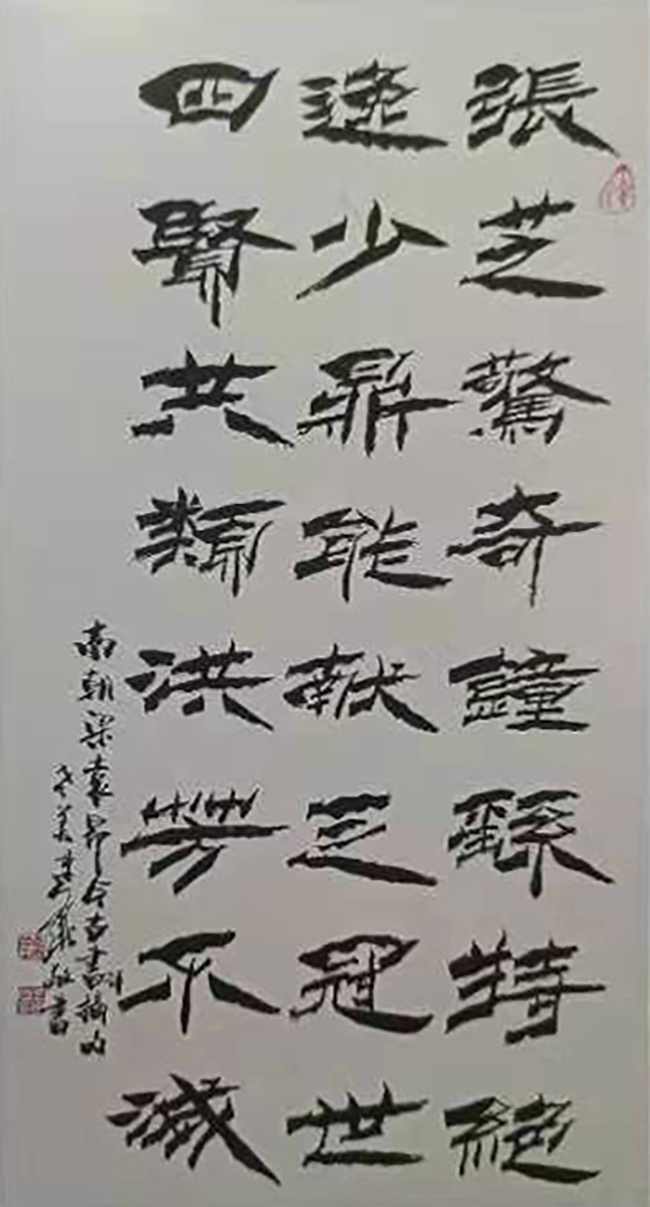 張芝驚奇鐘繇特絕
逸少鼎能献之冠世
四賢共類洪芳不滅
南朝梁袁昂今古書摘句
書